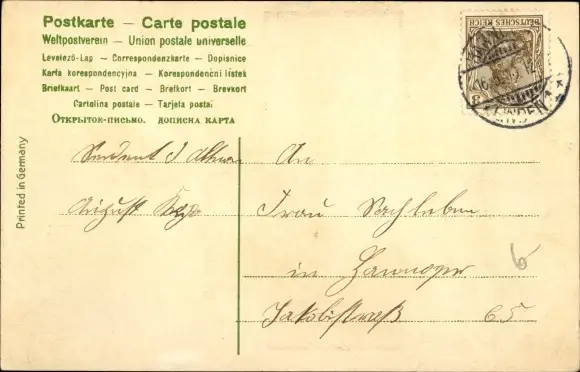 Postkarte – Carte postale
Weltpostverein – Union postale universelle
Levelező-Lap – Correspondenzkarte – Dopisnice
Karta korespondencyjna – Korespondenční lístek
Briefkaart – Post card – Brefkort – Brevkort
Cartolina postale – Tarjeta postal
Открытое-письмо. дописна карта
Printed in Germany
DEUTSCHES REICH
3
LINDEN
Sendent
August
An
Frau Sachleben
in Hannover
Jakobistraß 65
6